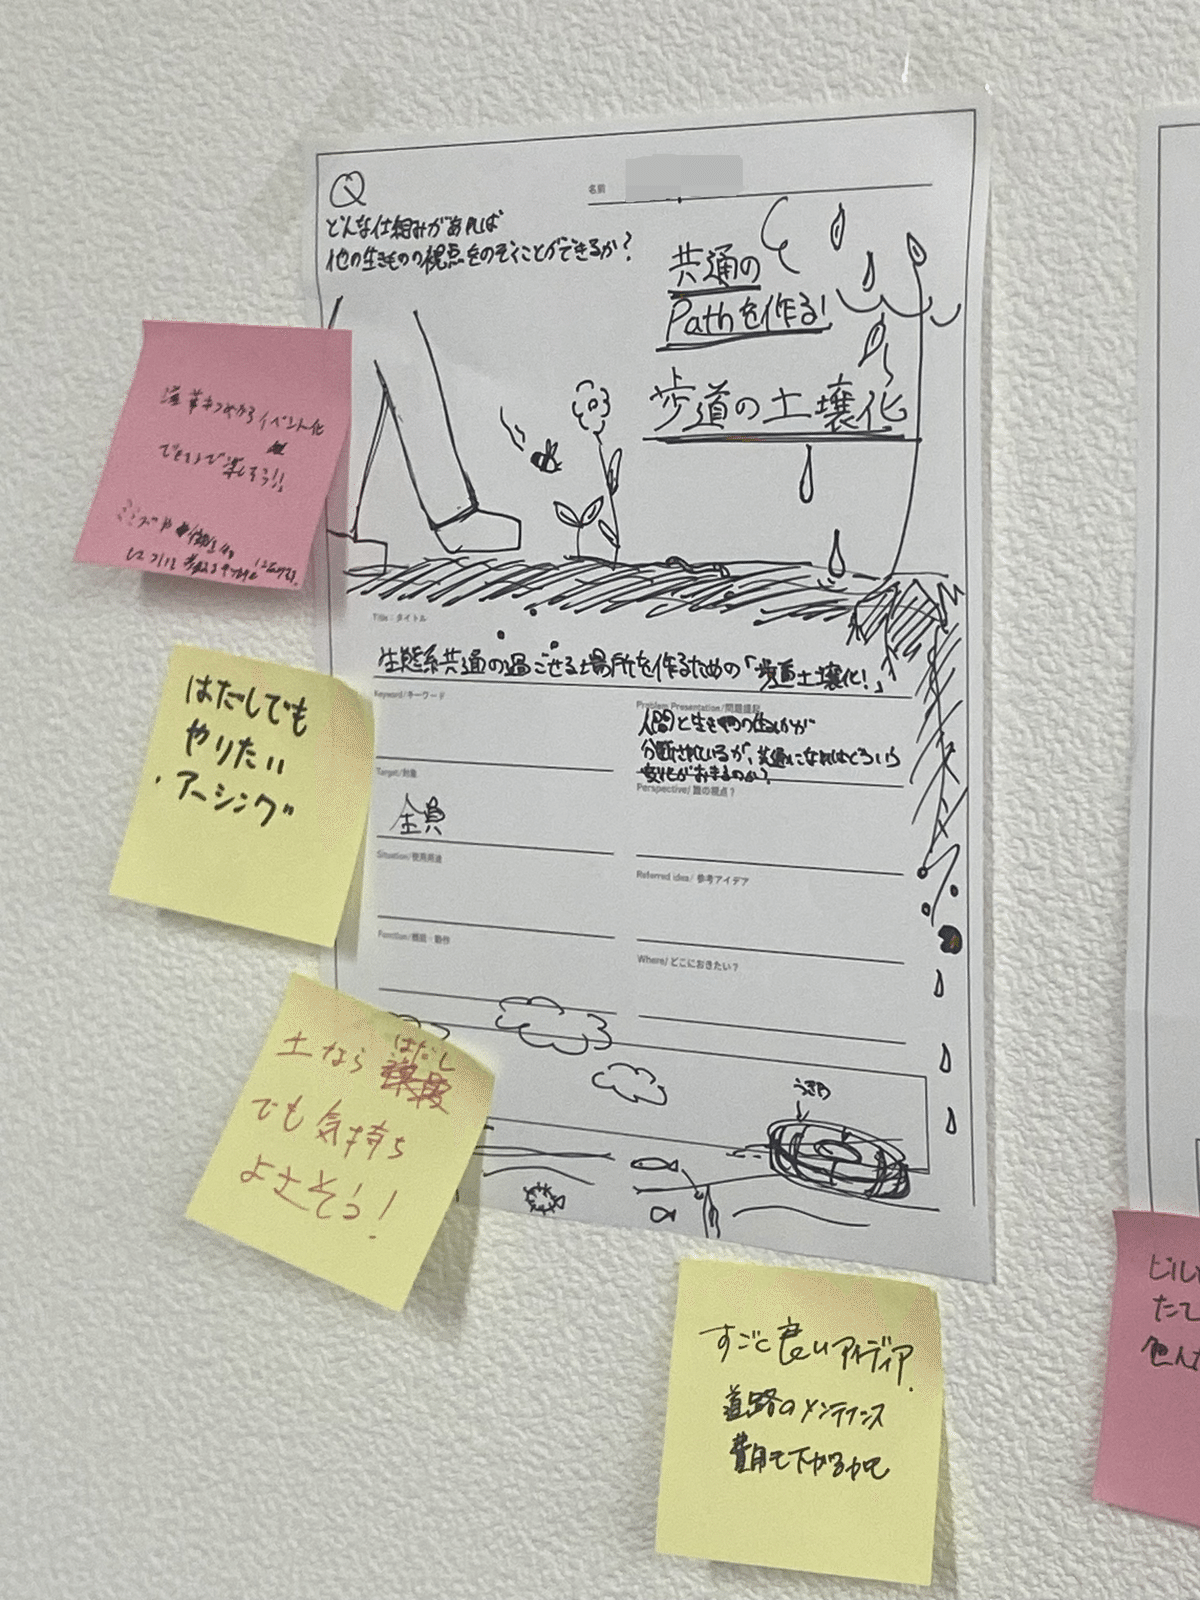 Q
どんな仕組みがあれば
他の生きものの視点をのぞくことができるか?
名前
共通の
Pathを作る!
歩道の土壌化
Title:タイトル
生態系共通の過ごせる場所を作るための「歩道土壌化!」
Keyword/キーワード
Problem Presentation/問題提起
人間と生き物の
分断されているが、共通になればどういう
変化がおきるのか?
Target/対象
全員
Perspective/ 誰の視点?
Situation/使用用途
Referred idea/ 参考アイデア
Function/機能・動作
Where/ どこにおきたい?
イベント化
できるまで楽しそう!!
ミミズや微生物
はだしでも
やりたい
・アーシング
土なら はだし
でも気持ち
よさそう!
すごく良いアイディア.
道路のメンテナンス
費用も下がるかも
ビル
たて
色んな